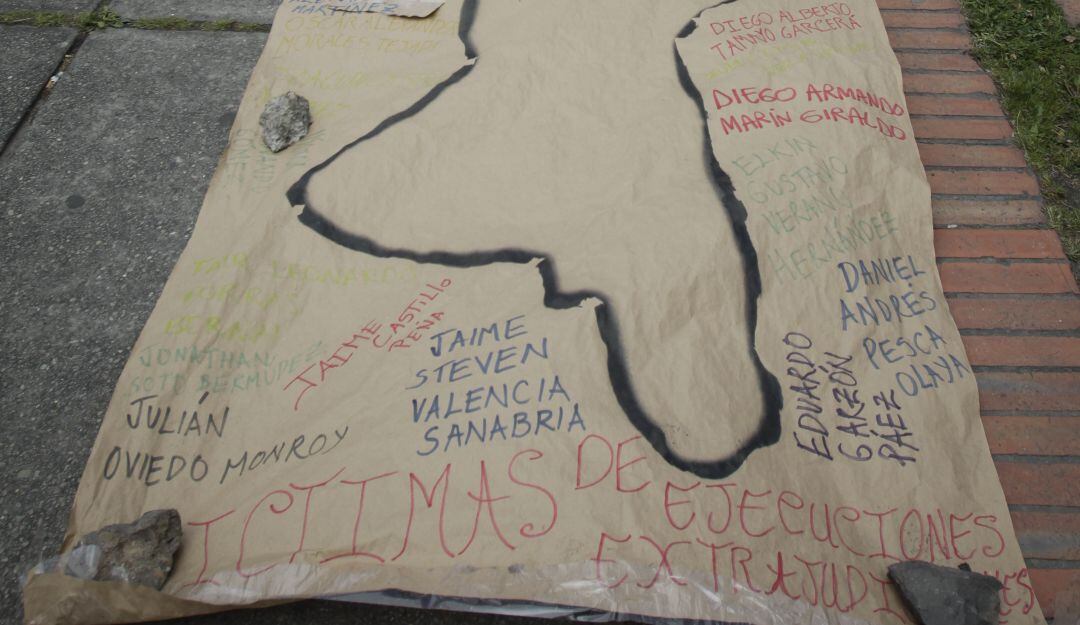 MARTÍNEZ
OSCAR ALEXANDER
MORALES TEJADA
DIEGO ALBERTO
TAMAYO GARCERÁ
DIEGO ARMANDO
MARÍN GIRALDO
ELKIN
GUSTAVO
VERANO
HERNÁNDEZ
DANIEL
ANDRÉS
PESCA
OLAYA
EDUARDO
GARZÓN
PÁEZ
LEONARDO
PORRAS
BERNAL
JAIME
CASTILLO
PEÑA
JAIME
STEVEN
VALENCIA
SANABRIA
JONATHAN
SOTO BERMÚDEZ
JULIÁN
OVIEDO MONROY
ICTIMAS DE
EJECUCIONES
EXTRAJUDI